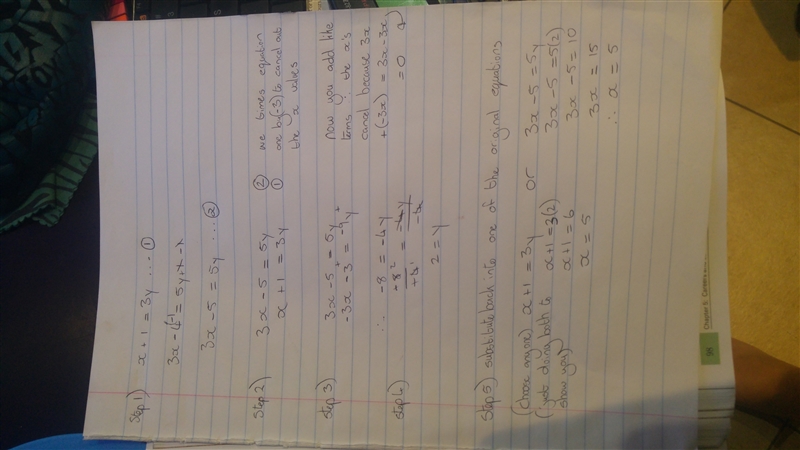 Step 1) x + 1 = 3y ... ①
3x - 5 = 5y ... ②
Step 2) 3x - 5 = 5y ② we times equation
x + 1 = 3y ① one by (-3) to cancel out
the x values
Step 3) 3x - 5 = 5y now you add like
-3x - 3 = -9y terms ∴ the x's
cancel because 3x
+(-3x) = 3x - 3x
= 0
Step 4) ∴ -8 = -4y
2 = y
Step 5) substitute back into one of the original equations
(choose anyone) x + 1 = 3y or 3x - 5 = 5y
doing both to x + 1 = 3(2) 3x - 5 = 5(2)
show you) x + 1 = 6 3x - 5 = 10
x = 5 3x = 15
∴ x = 5
98 Chapter 5 Careers